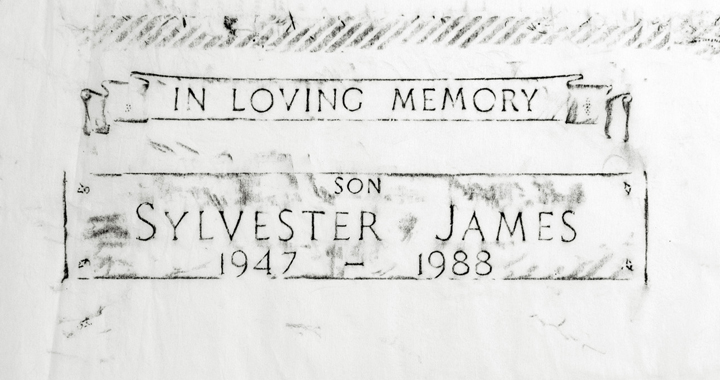 IN LOVING MEMORY
SON
SYLVESTER JAMES
1947 – 1988